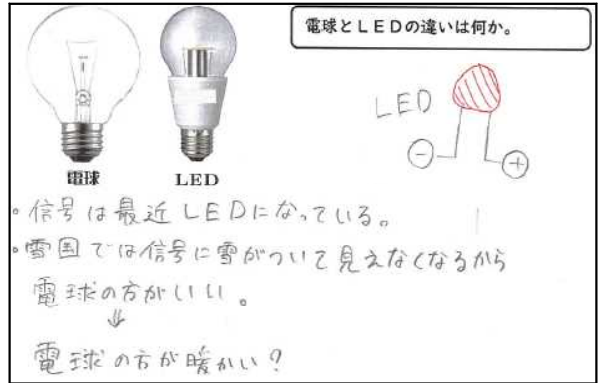 電球とLEDの違いは何か。
電球
LED
LED
⊖ ⊕
・信号は最近LEDになっている。
・雪国では信号に雪がついて見えなくなるから
電球の方がいい。
⇓
電球の方が暖かい？